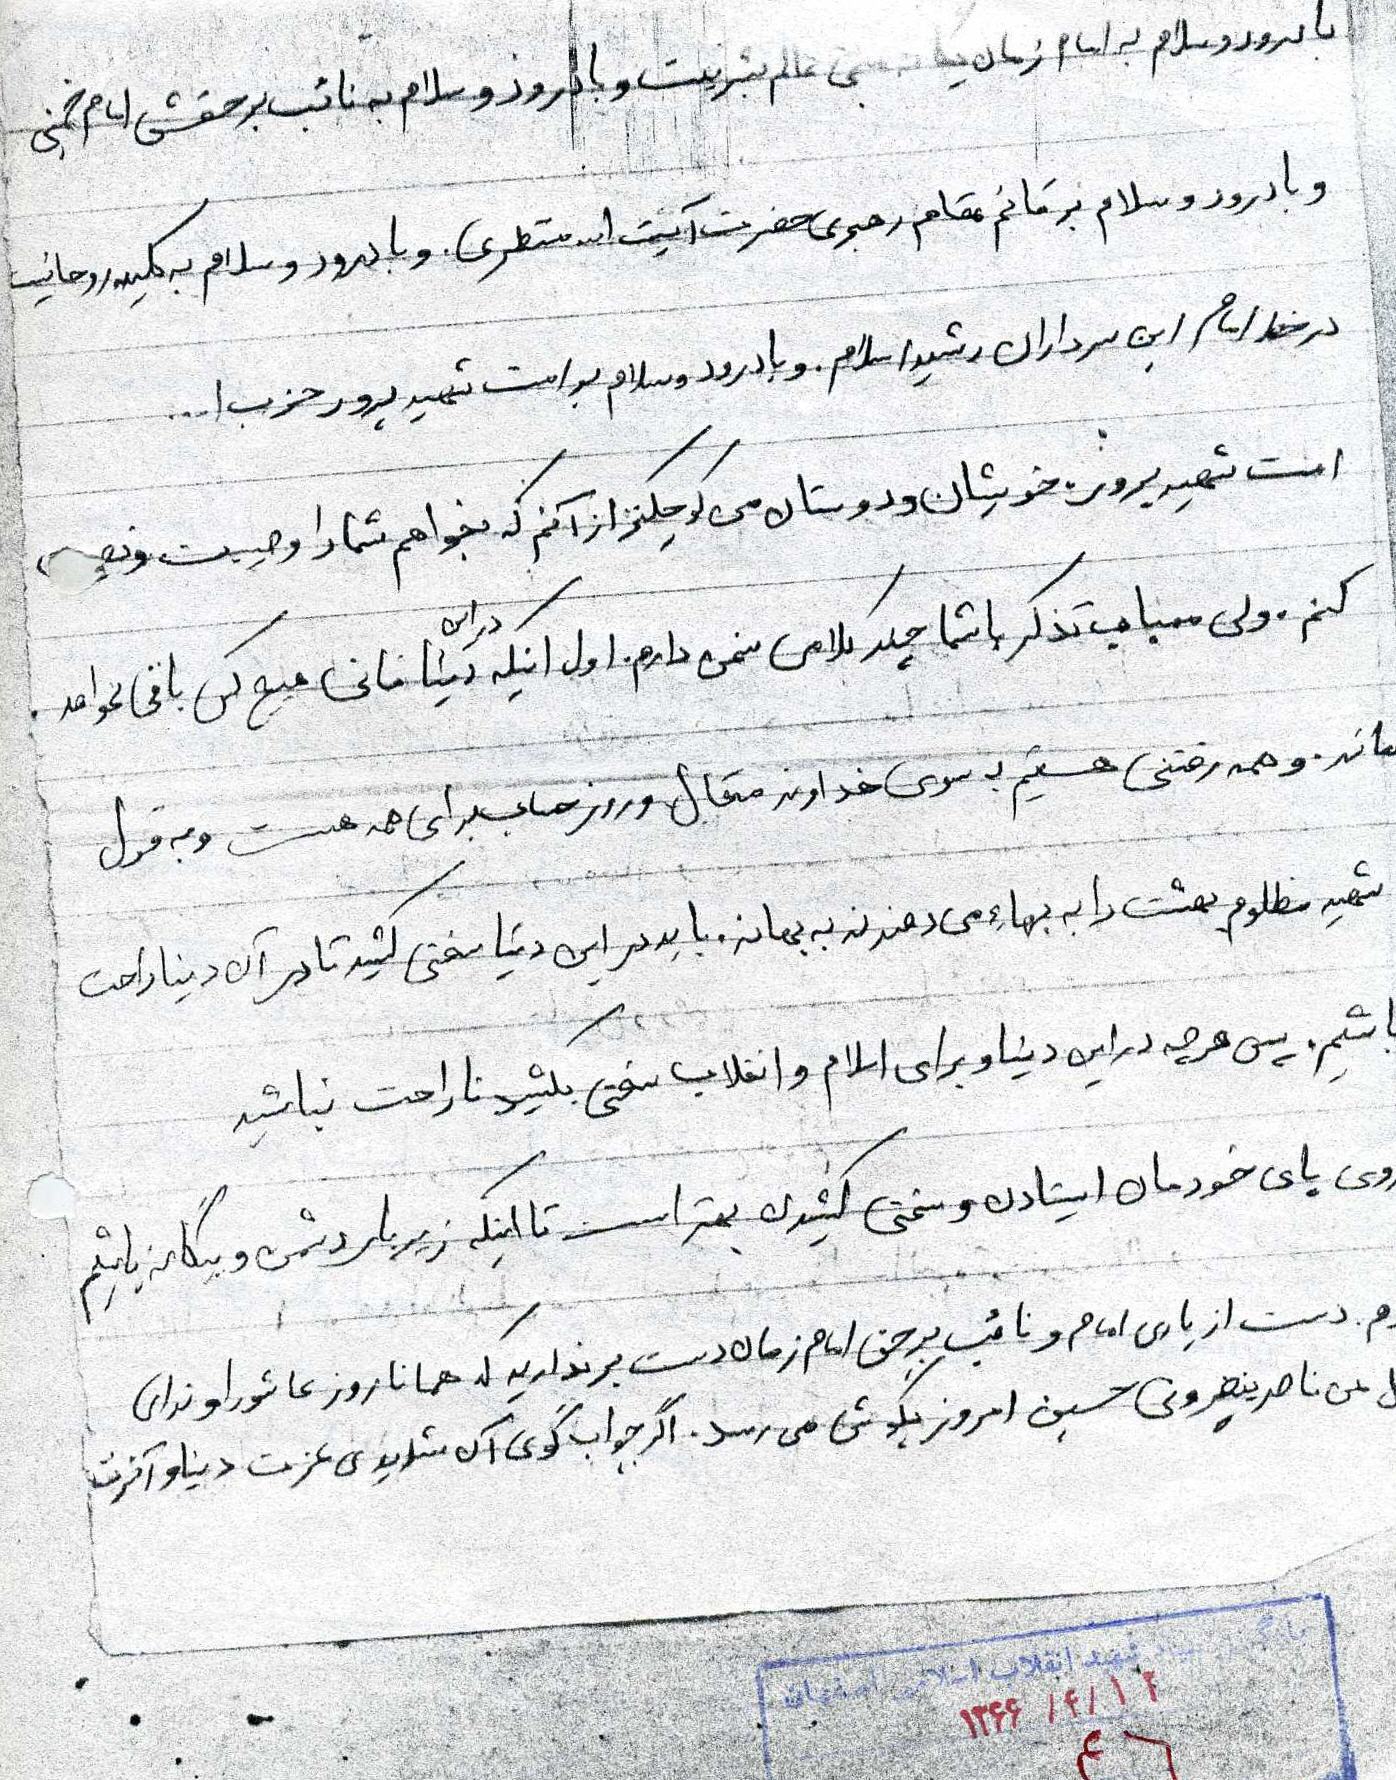 با درود و سلام به امام زمان یگانه منجی عالم بشریت و با درود و سلام به نائب بر حقش امام خمینی
و با درود و سلام بر قائم مقام رهبری حضرت آیت ا... منتظری. و با درود و سلام به کلیه روحانیت
در خط امام این سرداران رشید اسلام. و با درود و سلام بر امت شهید پرور حزب ا...
امت شهید پرور. خویشان و دوستان من کوچکتر از آنم که بخواهم شما را وصیت و
کنم. ولی من باب تذکر با شما چند کلامی سخن دارم. اول اینکه در این دنیا فانی هیچ کس باقی نخواهد.
ماند. و همه رفتنی هستیم به سوی خداوند متعال و روز حساب برای همه هست و به قول
شهید مظلوم بهشت را به بهاء می دهند نه به بهانه. باید در این دنیا سختی کشید تا در آن دنیا راحت
باشیم. پس هر چه در این دنیا و برای اسلام و انقلاب سختی بکشید ناراحت نباشید
روی پای خودمان ایستادن و سختی کشیدن بهتر است تا اینکه زیر بار دشمن و بیگانه باشیم
دست از یاری امام و نائب بر حق امام زمان دست بر ندارید که همانا روز عاشورا و ندای
من ناصر ینصرونی حسین امروز بگوش می رسد. اگر جواب گوی آن شدیدی عزت دنیا و آخرت
بنیاد شهید انقلاب اسلامی اصفهان
۱۳۶۶ /۴/۱۲
۴۶